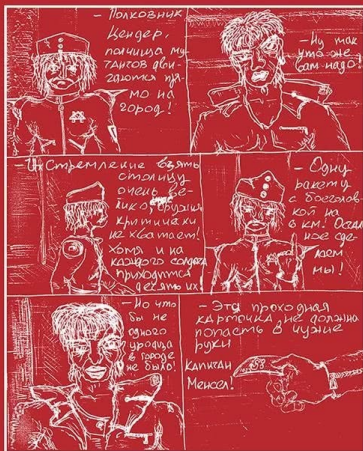 - Полковник
Цендер.
полчища му
тантов дви-
гаются пря-
мо на
город!
- Ну так
что же
вам надо!
- Их Стремление взять
столицу
очень ве-
лико оружия
критически
не хватает!
хотя и на
каждого солдата
приходится
десять их
- Одну
ракету
с боеголов
кой на
6 км! Осталь
ное сде-
лаем
мы!
- Но что
бы не
одного
уродца
в городе
не было!
- Эта проходная
карточка не должна
попасть в чужие
руки
Капитан
Менсел!